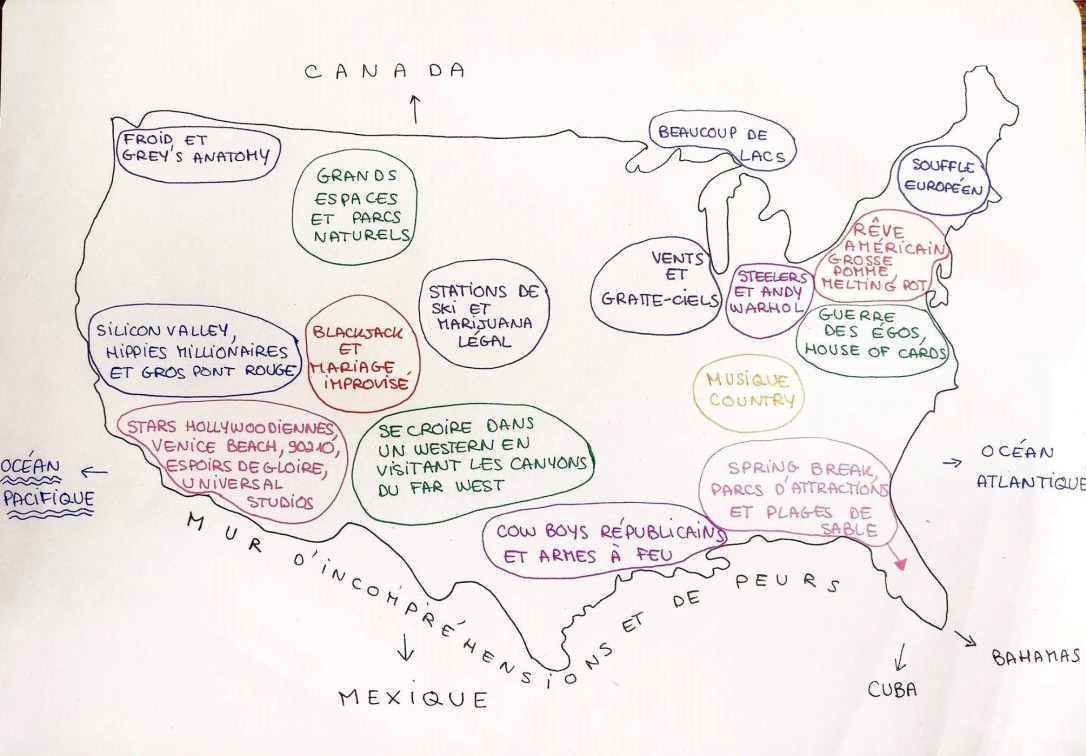 CANADA
FROID ET
GREY'S ANATOMY
GRANDS
ESPACES
ET PARCS
NATURELS
BEAUCOUP DE
LACS
SOUFFLE
EUROPÉEN
RÊVE
AMÉRICAIN
GROSSE
POMME,
MELTING POT
VENTS
ET
GRATTE-CIELS
STEELERS
ET ANDY
WARHOL
GUERRE
DES ÉGOS,
HOUSE OF CARDS
STATIONS DE
SKI ET
MARIJUANA
LÉGAL
SILICON VALLEY,
HIPPIES MILLIONAIRES
ET GROS PONT ROUGE
BLACKJACK
ET
MARIAGE
IMPROVISÉ
MUSIQUE
COUNTRY
STARS HOLLYWOODIENNES,
VENICE BEACH, 90210,
ESPOIRS DE GLOIRE,
UNIVERSAL
STUDIOS
SE CROIRE DANS
UN WESTERN EN
VISITANT LES CANYONS
DU FAR WEST
SPRING BREAK,
PARCS D'ATTRACTIONS
ET PLAGES DE
SABLE
COW BOYS RÉPUBLICAINS
ET ARMES À FEU
OCÉAN
PACIFIQUE
OCÉAN
ATLANTIQUE
MUR D'INCOMPRÉHENSIONS ET DE PEURS
MEXIQUE
CUBA
BAHAMAS